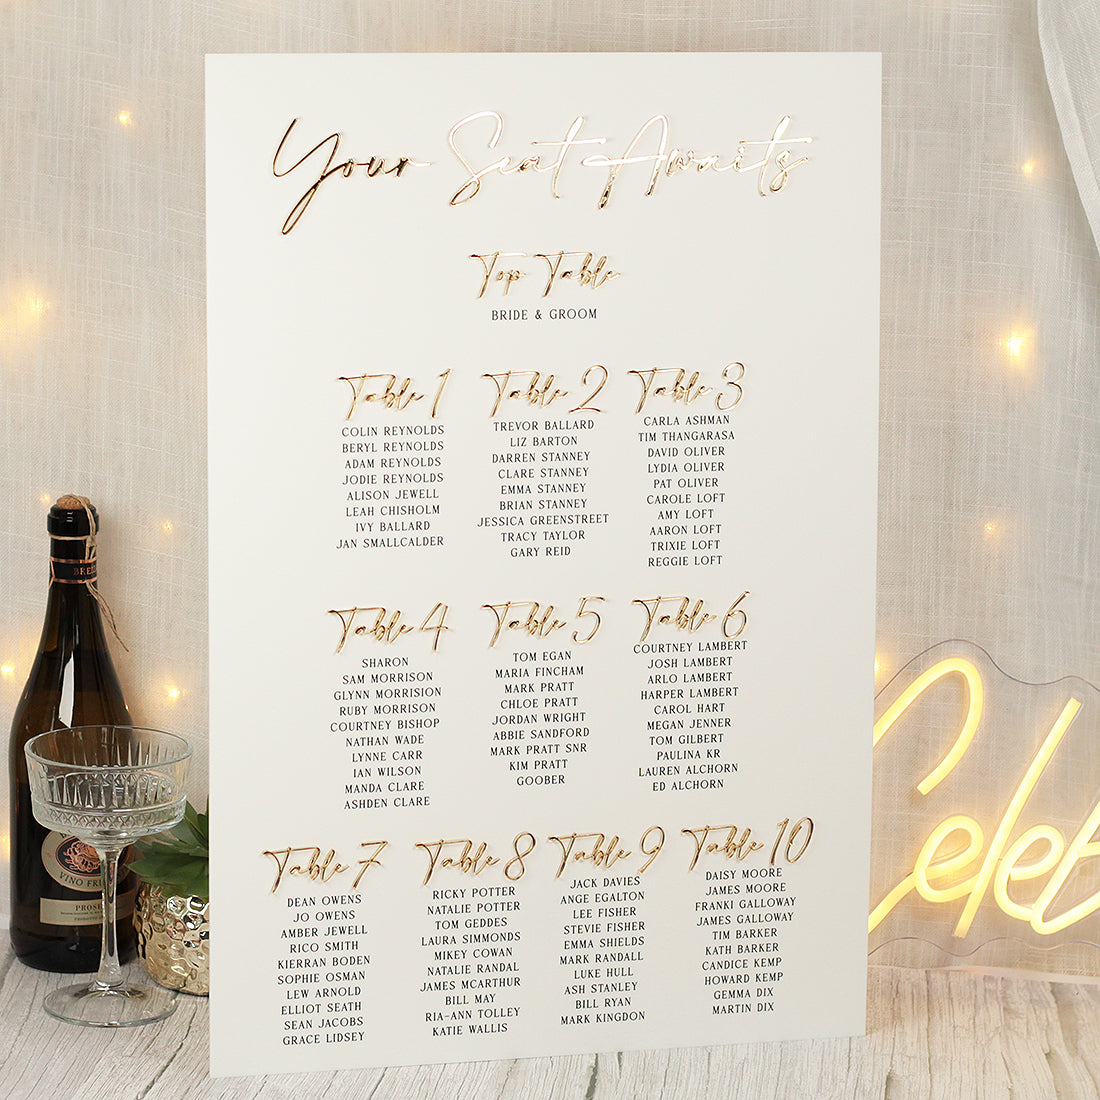 Your Seat Awaits
Top Table
BRIDE & GROOM
Table 1
COLIN REYNOLDS
BERYL REYNOLDS
ADAM REYNOLDS
JODIE REYNOLDS
ALISON JEWELL
LEAH CHISHOLM
IVY BALLARD
JAN SMALLCALDER
Table 2
TREVOR BALLARD
LIZ BARTON
DARREN STANNEY
CLARE STANNEY
EMMA STANNEY
BRIAN STANNEY
JESSICA GREENSTREET
TRACY TAYLOR
GARY REID
Table 3
CARLA ASHMAN
TIM THANGARASA
DAVID OLIVER
LYDIA OLIVER
PAT OLIVER
CAROLE LOFT
AMY LOFT
AARON LOFT
TRIXIE LOFT
REGGIE LOFT
Table 4
SHARON
SAM MORRISON
GLYNN MORRISION
RUBY MORRISON
COURTNEY BISHOP
NATHAN WADE
LYNNE CARR
IAN WILSON
MANDA CLARE
ASHDEN CLARE
Table 5
TOM EGAN
MARIA FINCHAM
MARK PRATT
CHLOE PRATT
JORDAN WRIGHT
ABBIE SANDFORD
MARK PRATT SNR
KIM PRATT
GOOBER
Table 6
COURTNEY LAMBERT
JOSH LAMBERT
ARLO LAMBERT
HARPER LAMBERT
CAROL HART
MEGAN JENNER
TOM GILBERT
PAULINA KR
LAUREN ALCHORN
ED ALCHORN
Table 7
DEAN OWENS
JO OWENS
AMBER JEWELL
RICO SMITH
KIERRAN BODEN
SOPHIE OSMAN
LEW ARNOLD
ELLIOT SEATH
SEAN JACOBS
GRACE LIDSEY
Table 8
RICKY POTTER
NATALIE POTTER
TOM GEDDES
LAURA SIMMONDS
MIKEY COWAN
NATALIE RANDAL
JAMES MCARTHUR
BILL MAY
RIA-ANN TOLLEY
KATIE WALLIS
Table 9
JACK DAVIES
ANGE EGALTON
LEE FISHER
STEVIE FISHER
EMMA SHIELDS
MARK RANDALL
LUKE HULL
ASH STANLEY
BILL RYAN
MARK KINGDON
Table 10
DAISY MOORE
JAMES MOORE
FRANKI GALLOWAY
JAMES GALLOWAY
TIM BARKER
KATH BARKER
CANDICE KEMP
HOWARD KEMP
GEMMA DIX
MARTIN DIX
VINO FRI
PROSE
Celeb